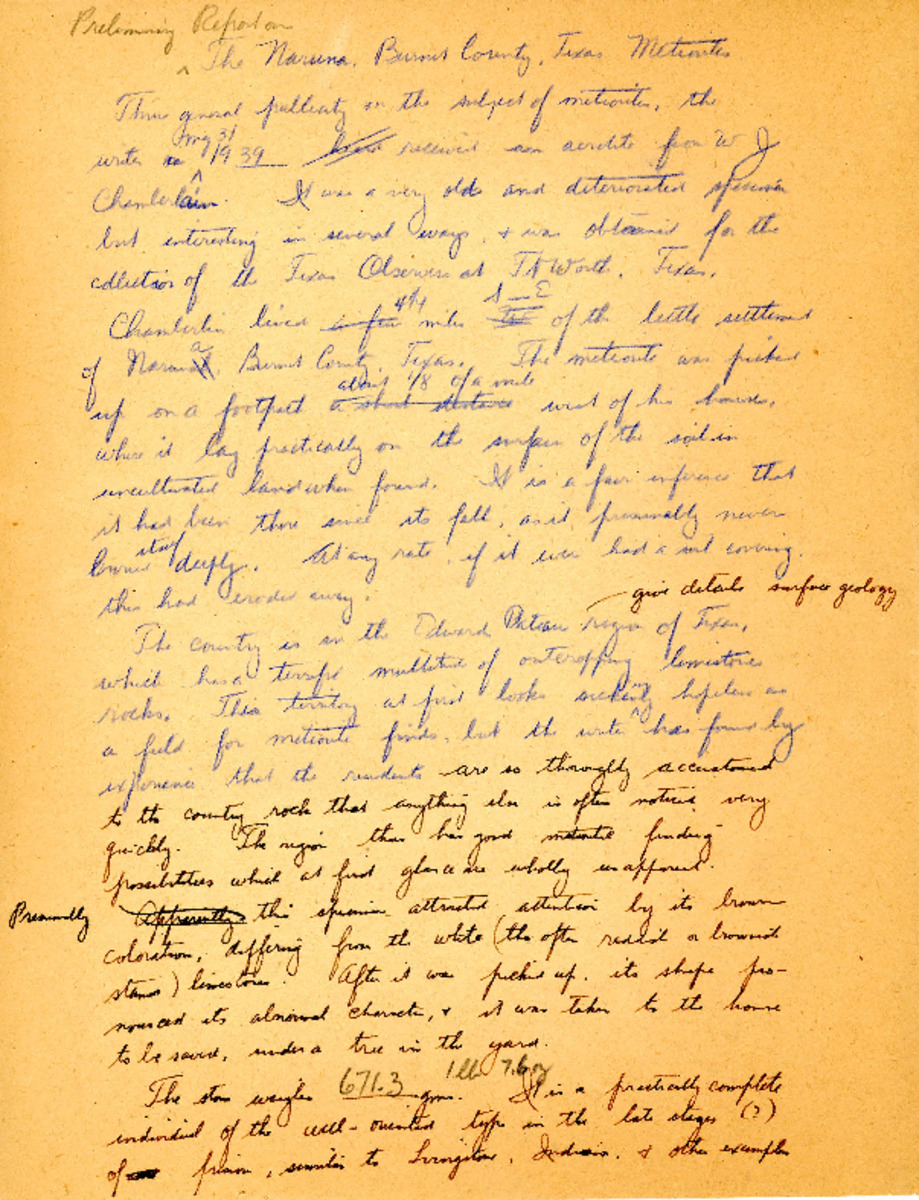 Preliminary Report on
The Naruna, Burnet County, Texas Meteorites
Thru general publicity on the subject of meteorites, the
writer in Aug 31 1939 had received an aerolite from W J
Chamberlain. It was a very old and deteriorated specimen
but interesting in several ways, & was obtained for the
collection of the Texas Observers at Ft Worth, Texas.
Chamberlin lived a few 4 1/4 miles S — E of the little settlement
of Naruna, Burnet County, Texas. The meteorite was picked
up on a footpath a short distance about 1/8 of a mile west of his house,
where it lay practically on the surface of the soil in
uncultivated land when found. It is a fair inference that
it had been there since its fall, as it presumably never
buried itself deeply. At any rate, if it ever had a soil covering,
this had eroded away.
give details surface geology
The country is in the Edward Plateau region of Texas,
which has a terrific multitude of outcropping limestone
rocks. This territory at first looks seemingly hopeless as
a field for meteorite finds, but the writer has found by
experience that the residents are so thoroughly accustomed
to the country rock that anything else is often noticed very
quickly. The region thus has good meteorite finding
possibilities which at first glance are wholly unapparent.
Presumably Apparently this specimen attracted attention by its brown
coloration, differing from the white (tho often reddish or brownish
stained) limestone. After it was picked up, its shape pro-
nounced its abnormal character, & it was taken to the house
to be saved, under a tree in the yard.
The stone weighs 671.3 gms. 1 lb 7.6 oz It is a practically complete
individual of the well-oriented type in the late stages (?)
of fusion, similar to Livingston, Indian, & other examples